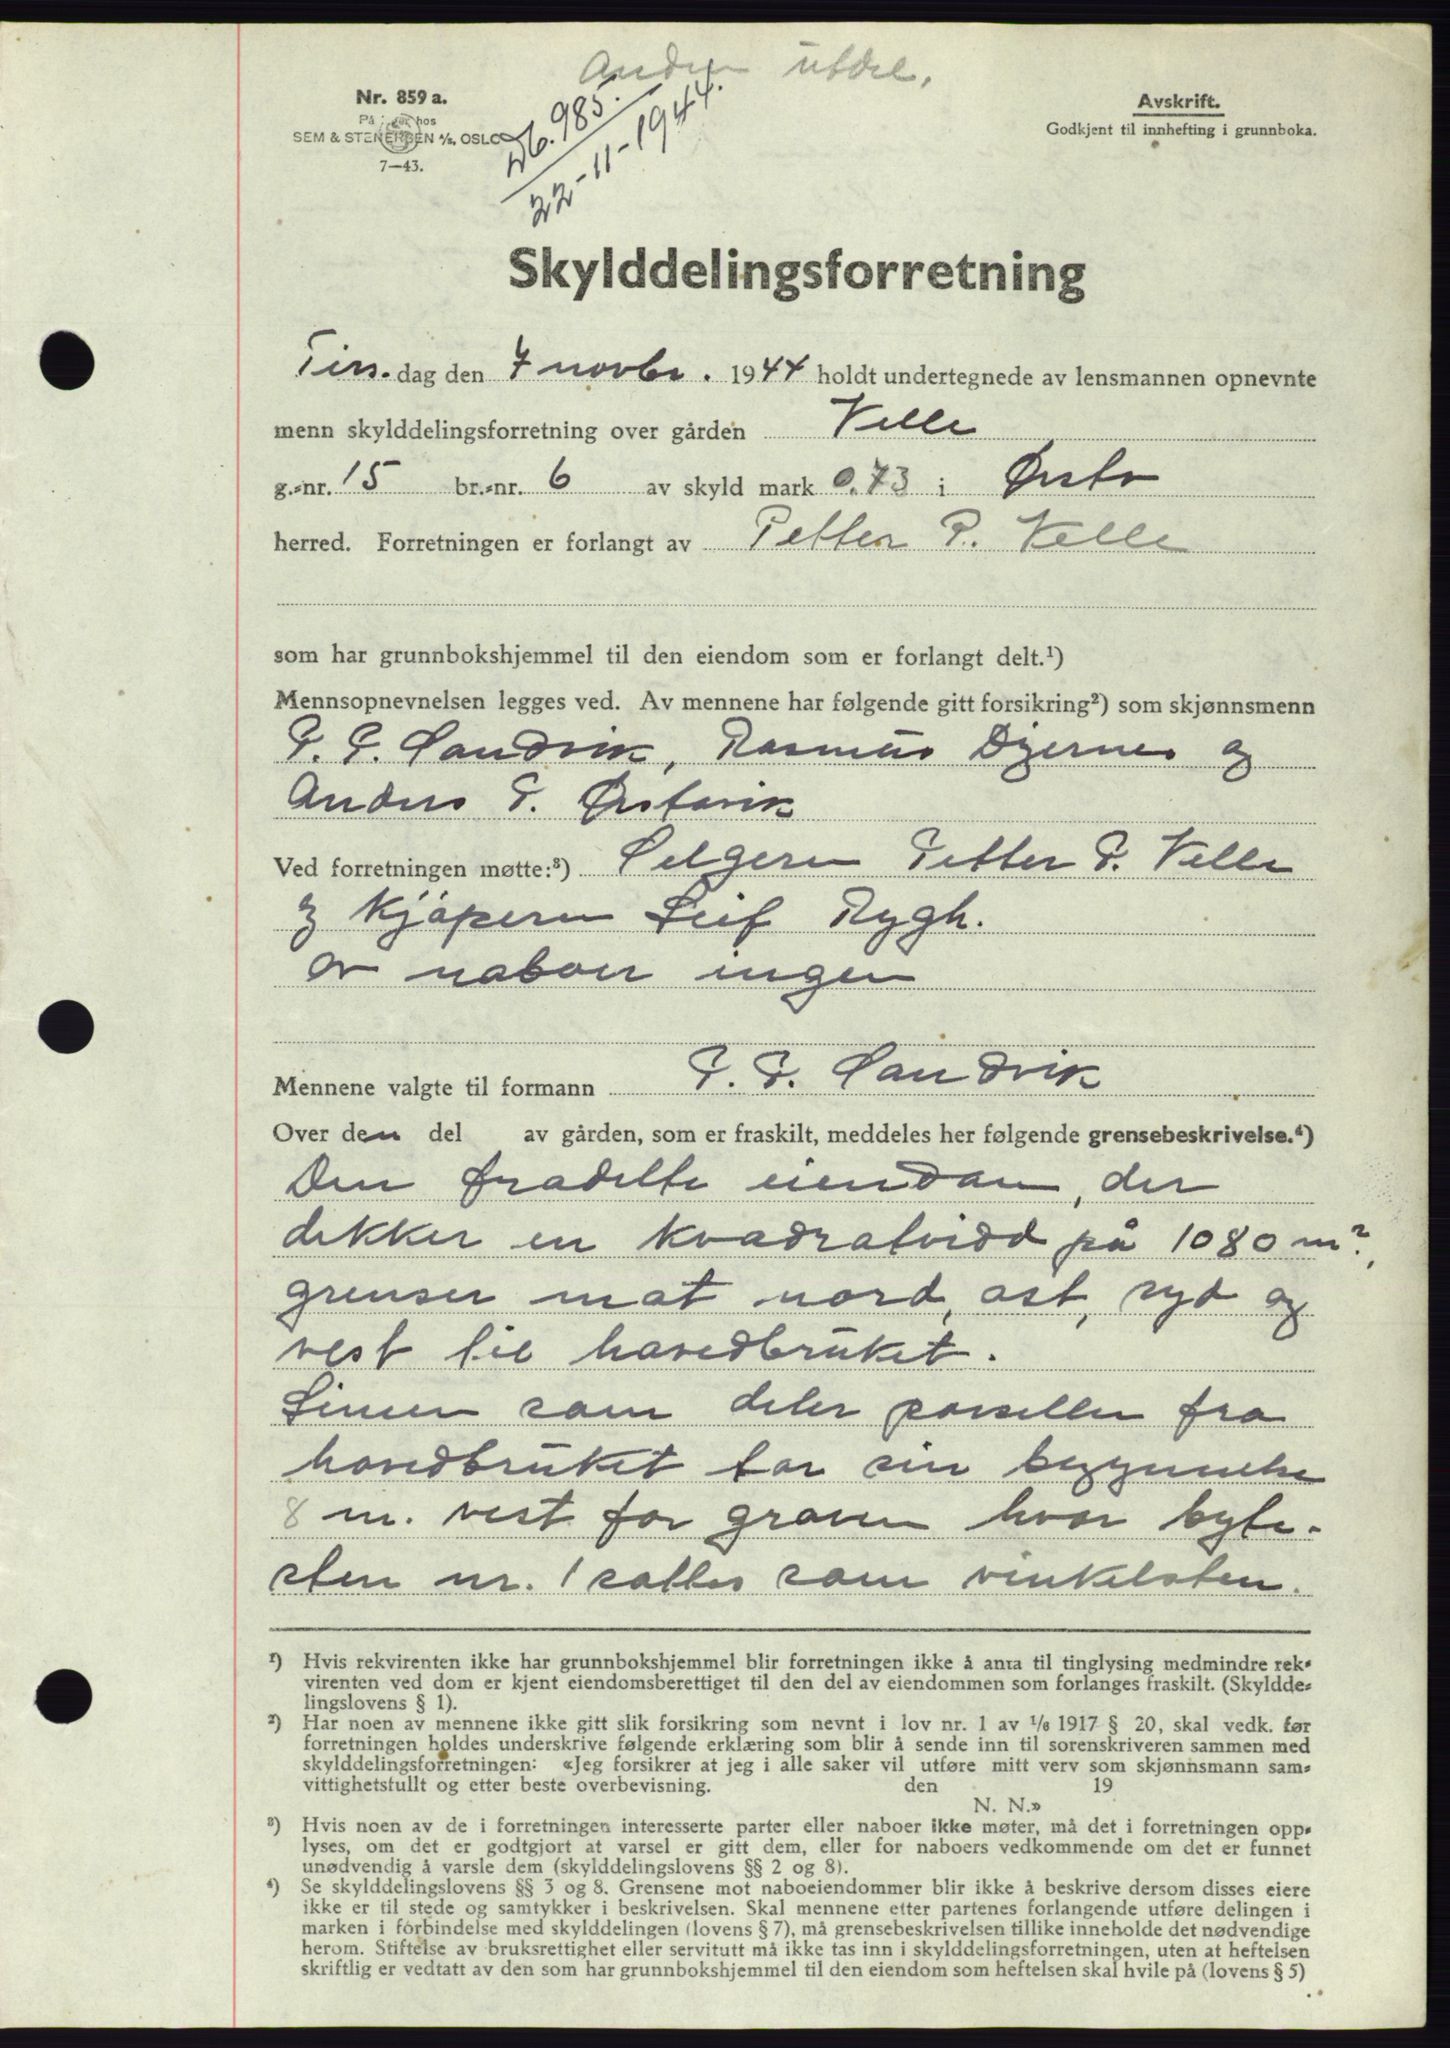 Nr. 859 a.
På lager hos
SEM & STENERSEN A/S, OSLO
7—43.
utdel.
Db. 985.
22-11-1944.
Avskrift.
Godkjent til innhefting i grunnboka.
Skylddelingsforretning
Tirs. dag den 7 novbr. 1944 holdt undertegnede av lensmannen opnevnte
menn skylddelingsforretning over gården Velle
g.=nr. 15 br.=nr. 6 av skyld mark 0.73 i Ørsta
herred. Forretningen er forlangt av Petter P. Velle
som har grunnbokshjemmel til den eiendom som er forlangt delt.¹)
Mennsopnevnelsen legges ved. Av mennene har følgende gitt forsikring²) som skjønnsmenn
P. P. Sandvik, Rasmus Digernes og
Anders P. Ørstavik
Ved forretningen møtte:³) Selgeren Petter P. Velle
og kjøperen Leif Rygh.
av naboer ingen
Mennene valgte til formann P. P. Sandvik
Over den del av gården, som er fraskilt, meddeles her følgende grensebeskrivelse.⁴)
Den fradelte eiendom, der
dekker en kvadratvidd på 1080 m²,
grenser mot nord, ost, syd og
vest til hovedbruket.
Linien som deler parsellen fra
hovedbruket tar sin begynnelse
8 m. vest for graven hvor byte-
sten nr. 1 sattes som vinkelsten.
¹) Hvis rekvirenten ikke har grunnbokshjemmel blir forretningen ikke å anta til tinglysing medmindre rek=
virenten ved dom er kjent eiendomsberettiget til den del av eiendommen som forlanges fraskilt. (Skyldde=
lingslovens § 1).
²) Har noen av mennene ikke gitt slik forsikring som nevnt i lov nr. 1 av 1/6 1917 § 20, skal vedk. før
forretningen holdes underskrive følgende erklæring som blir å sende inn til sorenskriveren sammen med
skylddelingsforretningen: «Jeg forsikrer at jeg i alle saker vil utføre mitt verv som skjønnsmann sam=
vittighetsfullt og etter beste overbevisning. den 19
N. N.»
³) Hvis noen av de i forretningen interesserte parter eller naboer ikke møter, må det i forretningen opp=
lyses, om det er godtgjort at varsel er gitt dem, eller for naboers vedkommende om det er funnet
unødvendig å varsle dem (skylddelingslovens §§ 2 og 8).
⁴) Se skylddelingslovens §§ 3 og 8. Grensene mot naboeiendommer blir ikke å beskrive dersom disses eiere
ikke er til stede og samtykker i beskrivelsen. Skal mennene etter partenes forlangende utføre delingen i
marken i forbindelse med skylddelingen (lovens § 7), må grensebeskrivelsen tillike inneholde det nødvendige
herom. Stiftelse av bruksrettighet eller servitutt må ikke tas inn i skylddelingsforretningen, uten at heftelsen
skriftlig er vedtatt av den som har grunnbokshjemmel til den eiendom som heftelsen skal hvile på (lovens § 5)